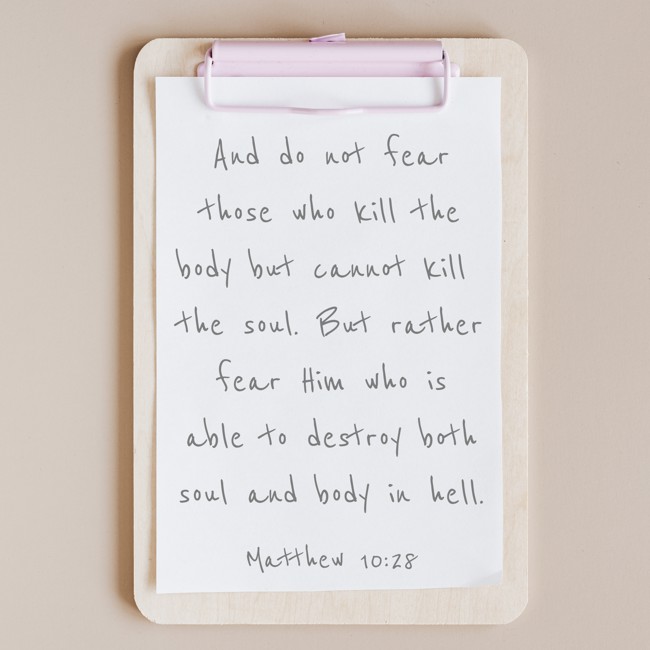 And do not fear
those who kill the
body but cannot kill
the soul. But rather
fear Him who is
able to destroy both
soul and body in hell.
Matthew 10:28